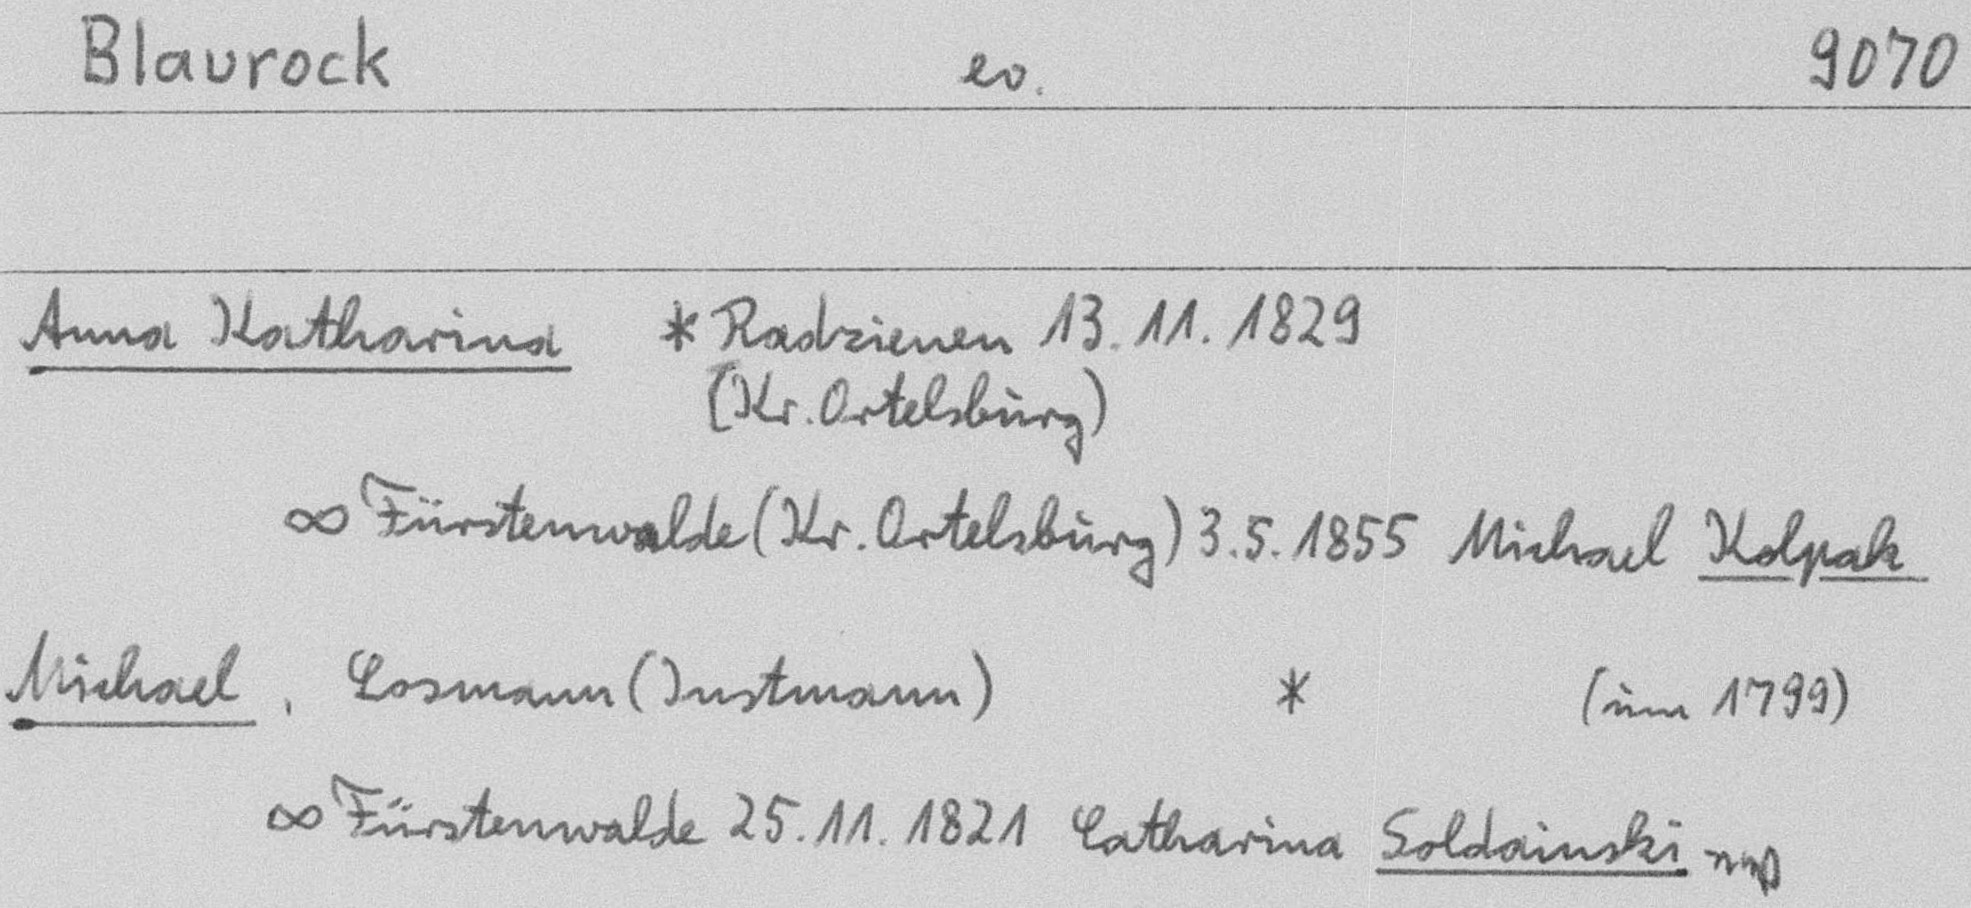 Blaurock ev. 9070
Anna Katharina * Radzienen 13.11.1829
(Kr. Ortelsburg)
∞ Fürstenwalde (Kr. Ortelsburg) 3.5.1855 Michael Kolpak
Michael, Losmann (Instmann) * (um 1799)
∞ Fürstenwalde 25.11.1821 Catharina Soldainski